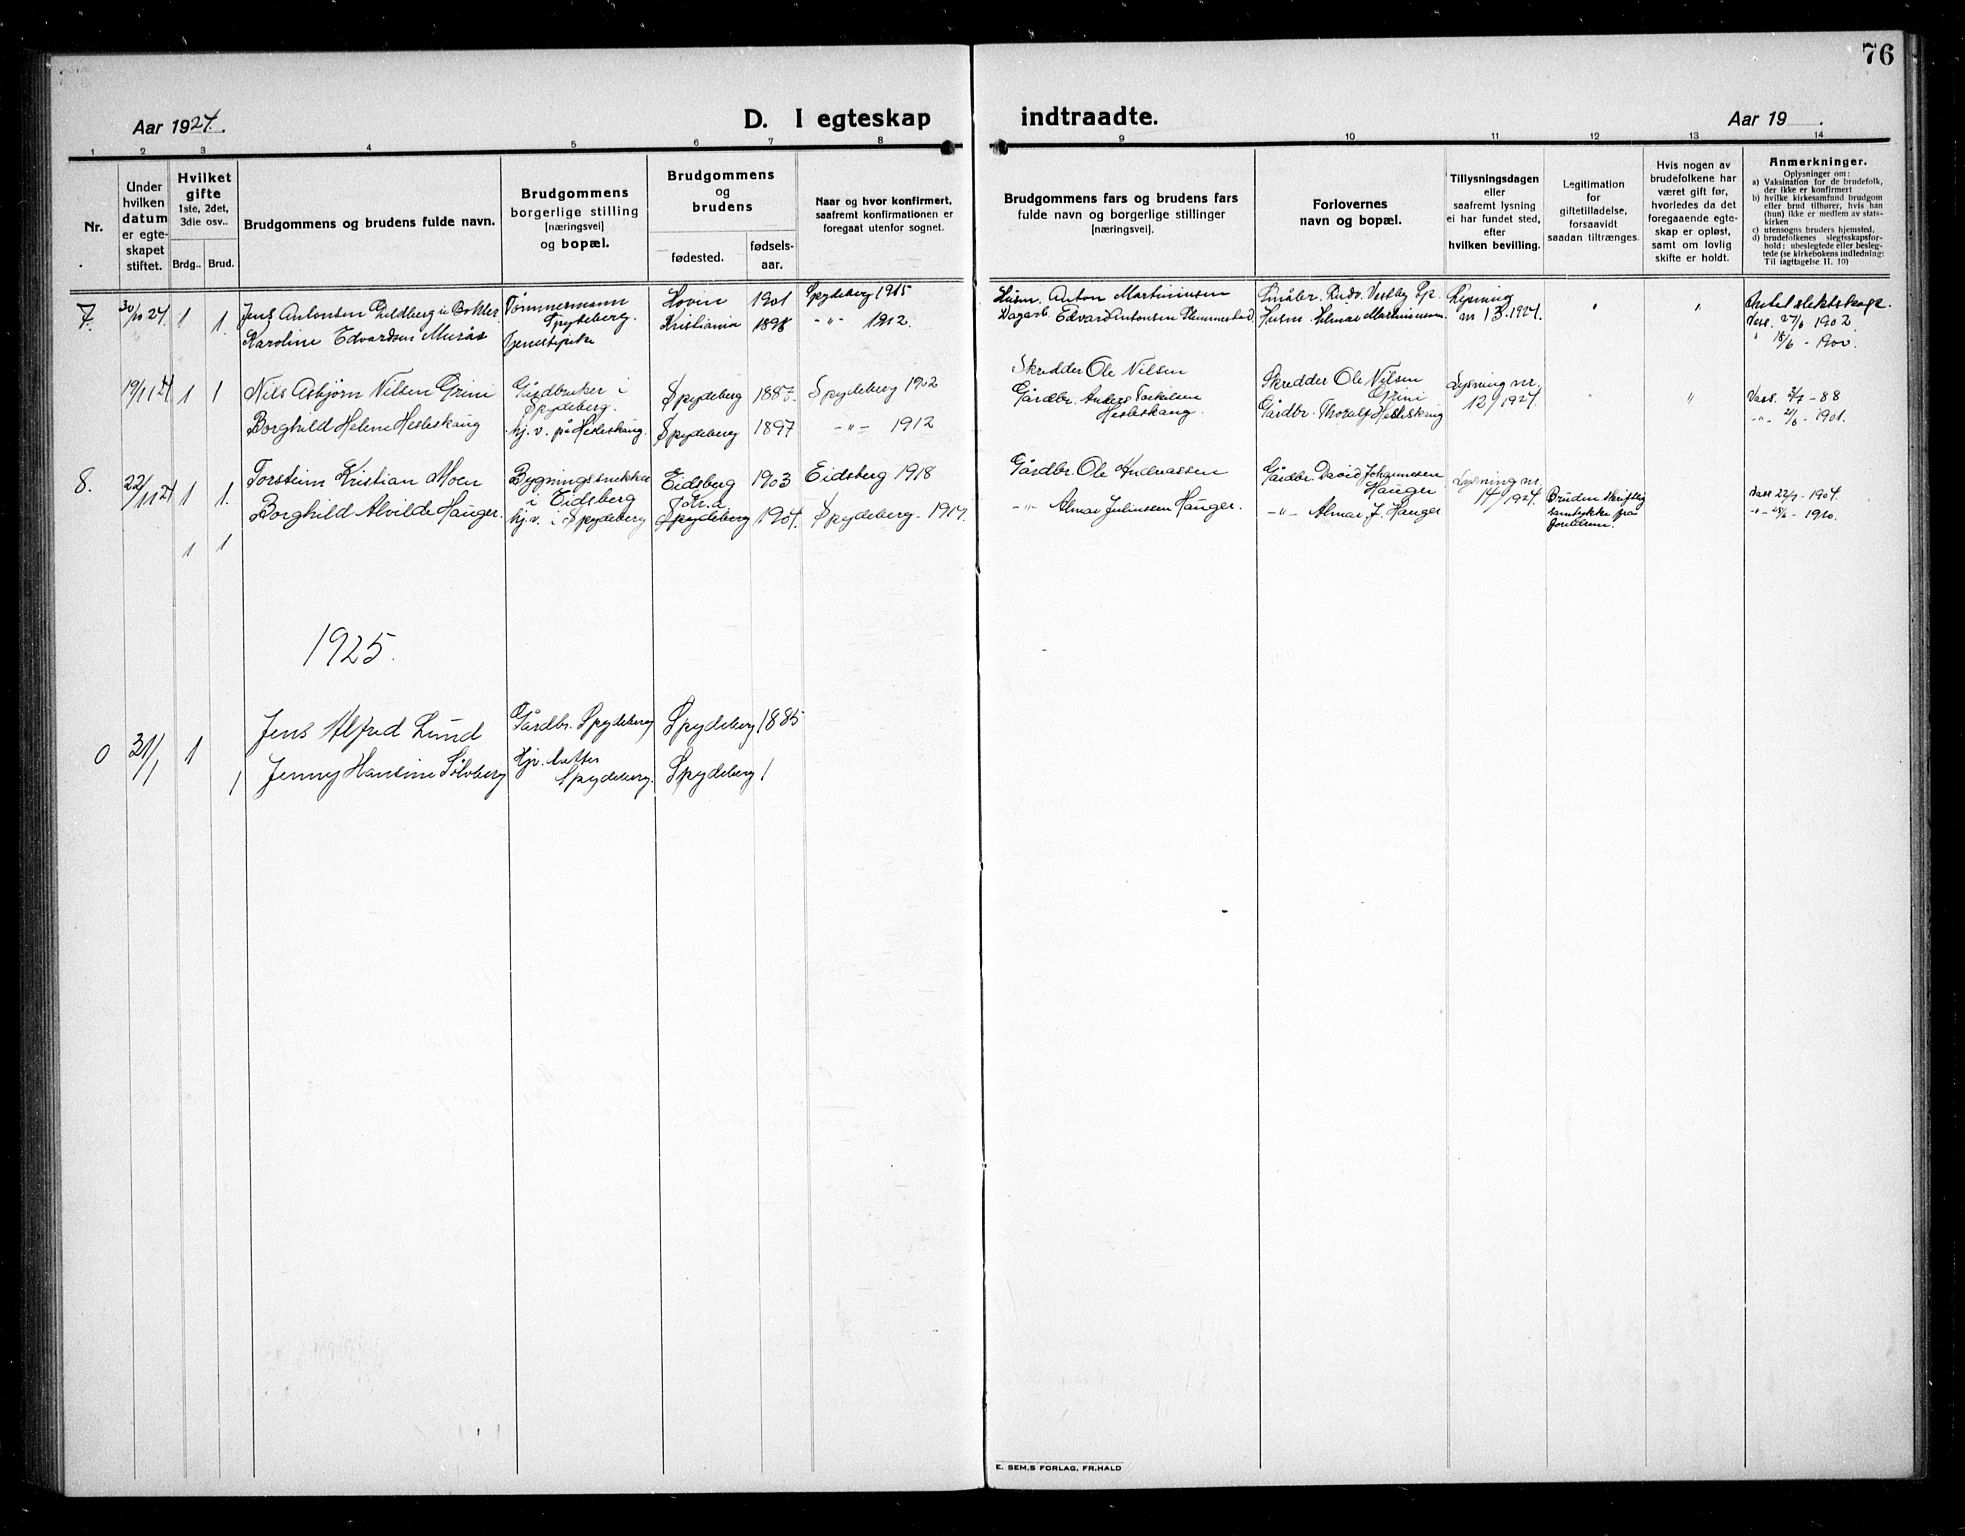 76
Aar 1924.
D. I egteskap indtraadte.
Aar 19 .
1 2 3 4 5 6 7 8 9 10 11 12 13 14
Nr.
Under hvilken datum er egteskapet stiftet.
Hvilket gifte
1ste, 2det, 3die osv..
Brdg.. Brud.
Brudgommens og brudens fulde navn.
Brudgommens borgerlige stilling [næringsvei] og bopæl.
Brudgommens og brudens
fødested. fødsels-aar.
Naar og hvor konfirmert, saafremt konfirmationen er foregaat utenfor sognet.
Brudgommens fars og brudens fars fulde navn og borgerlige stillinger [næringsvei].
Forlovernes navn og bopæl.
Tillysningsdagen eller saafremt lysning ei har fundet sted, efter hvilken bevilling.
Legitimation for giftetilladelse, forsaavidt saadan tiltrænges.
Hvis nogen av brudefolkene har været gift før, hvorledes da det foregaaende egteskap er opløst, samt om lovlig skifte er holdt.
Anmerkninger.
Oplysninger om:
a) Vaksination for de brudefolk, der ikke er konfirmert
b) hvilke kirkesamfund brudgom eller brud tilhører, hvis han (hun) ikke er medlem av statskirken
c) utensogns bruders hjemsted,
d) brudefolkenes slegtsskapsforhold: ubeslegtede eller beslegtede (se kirkebokens indledning: Til iagttagelse II. 10)
7. 30/10 24. 1 1. Jens Antonsen Tømmermann Spydeberg. Hovin 1901 Spydeberg 1915 Husm. Anton Martiniusen Småbr. Rudv. Vestby Sp. Lysning nr 13-1924. " "
Karoline Edvardsen Tjenestepike Kristiania 1898 -"- 1912. Edvard Antonsen Husm. Hilmar Martiniusen Vass. 27/6 1902
19/11 24 1 1 Nils Asbjørn Nilsen Grini Gårdbruker i Spydeberg. Spydeberg 1887. Spydeberg 1902 Skredder Ole Nilsen Skredder Ole Nilsen Grini Lysning nr. 12/1924. " " Vass. - 88
Borghild Helene Hesleskaug hj. v. på Hesleskaug. Spydeberg 1897 -"- 1912 Gårdbr. Anders Torkilsen Hesleskaug. Gårdbr. Thoralf Hesleskaug -"- 21/6 - 1901.
8. 22/11 24 1 1. Torstein Kristian Moen Bygningssnekker i Eidsberg Eidsberg 1903 Eidsberg 1918 Gårdbr. Ole Andreassen Gårdbr. David Johannesen Hauger Lysning nr. 14/1924. Bruden skriftlig samtykke fra foreldrene. Vass 22/9 - 1904.
Borghild Alvilde Hauger. hj. v. i Spydeberg Spydeberg 1904. Spydeberg - 1919. -"- Almar Juliussen Hauger. -"- Almar J. Hauger -"- - 1910.
1 1
1925.
0 31/1 1 Jens Alfred Lund Gårdbr. Spydeberg Spydeberg 1885
1 Jenny Hansine Solvberg Hj. datter Spydeberg. Spydeberg 1
E. SEM,S FORLAG, FR.HALD